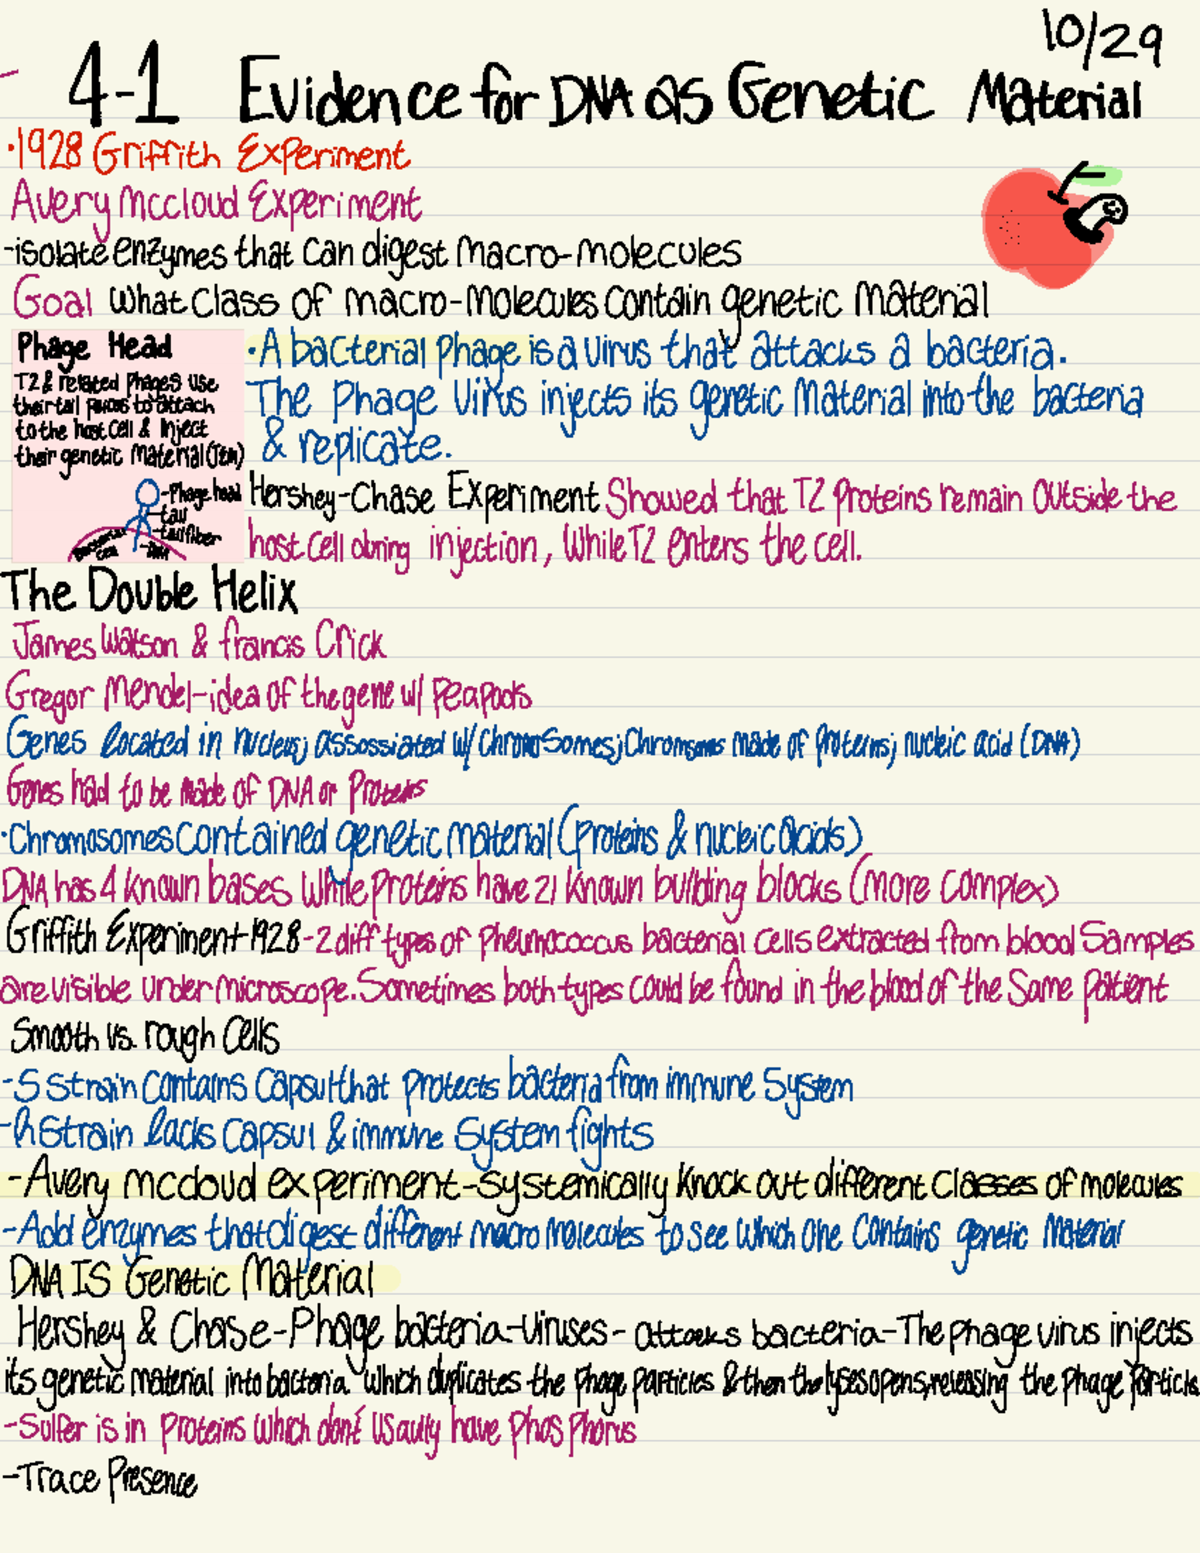 10/29
4-1 Evidence for DNA as Genetic Material
·1928 Griffith Experiment
Avery mccloud Experiment
-isolate enzymes that can digest macro-molecules
Goal what class of macro-molecules contain genetic material
Phage Head
T2 & related phages use
their tail to attach
to the host cell & inject
their genetic material
-Phage head
-tail
-tail fiber
Bacterial cell
-DNA
·A bacterial phage is a virus that attacks a bacteria.
The Phage Virus injects its genetic material into the bacteria
& replicate.
Hershey-Chase Experiment Showed that T2 proteins remain outside the
host cell during injection, while T2 enters the cell.
The Double Helix
James Watson & francis Crick
Gregor Mendel-idea of the gene w/ peapods
Genes located in nucleus; assossiated w/ chromosomes; chromosomes made of proteins; nucleic acid (DNA)
Genes had to be made of DNA or Proteins
·Chromosomes contained genetic material (proteins & nucleic acids)
DNA has 4 known bases while proteins have 21 known building blocks (more complex)
Griffith Experiment-1928-2 diff types of pneumococcus bacterial cells extracted from blood Samples
are visible under microscope. Sometimes both types could be found in the blood of the same patient
Smooth vs. rough Cells
-S Strain contains capsul that protects bacteria from immune system
-R Strain lacks capsul & immune system fights
-Avery mccloud experiment-systemically knock out different classes of molecules
-Add enzymes that digest different macro molecules to see which one contains genetic material
DNA IS Genetic Material
Hershey & Chase-Phage bacteria-viruses- attacks bacteria-The phage virus injects
its genetic material into bacteria which duplicates the phage particles & then the lyses opens, releasing the phage particles
-Sulfer is in proteins which don't usaully have phosphorus
-Trace Presence